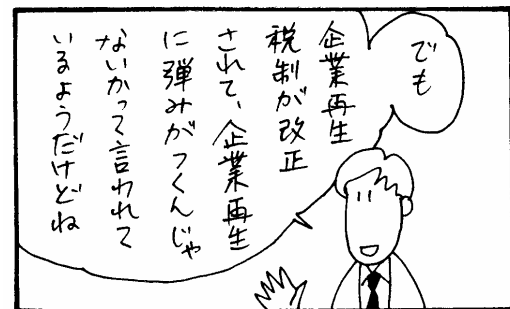 でも
企業再生
税制が改正
されて、企業再生
に弾みがつくんじゃ
ないかって言われて
いるようだけどね